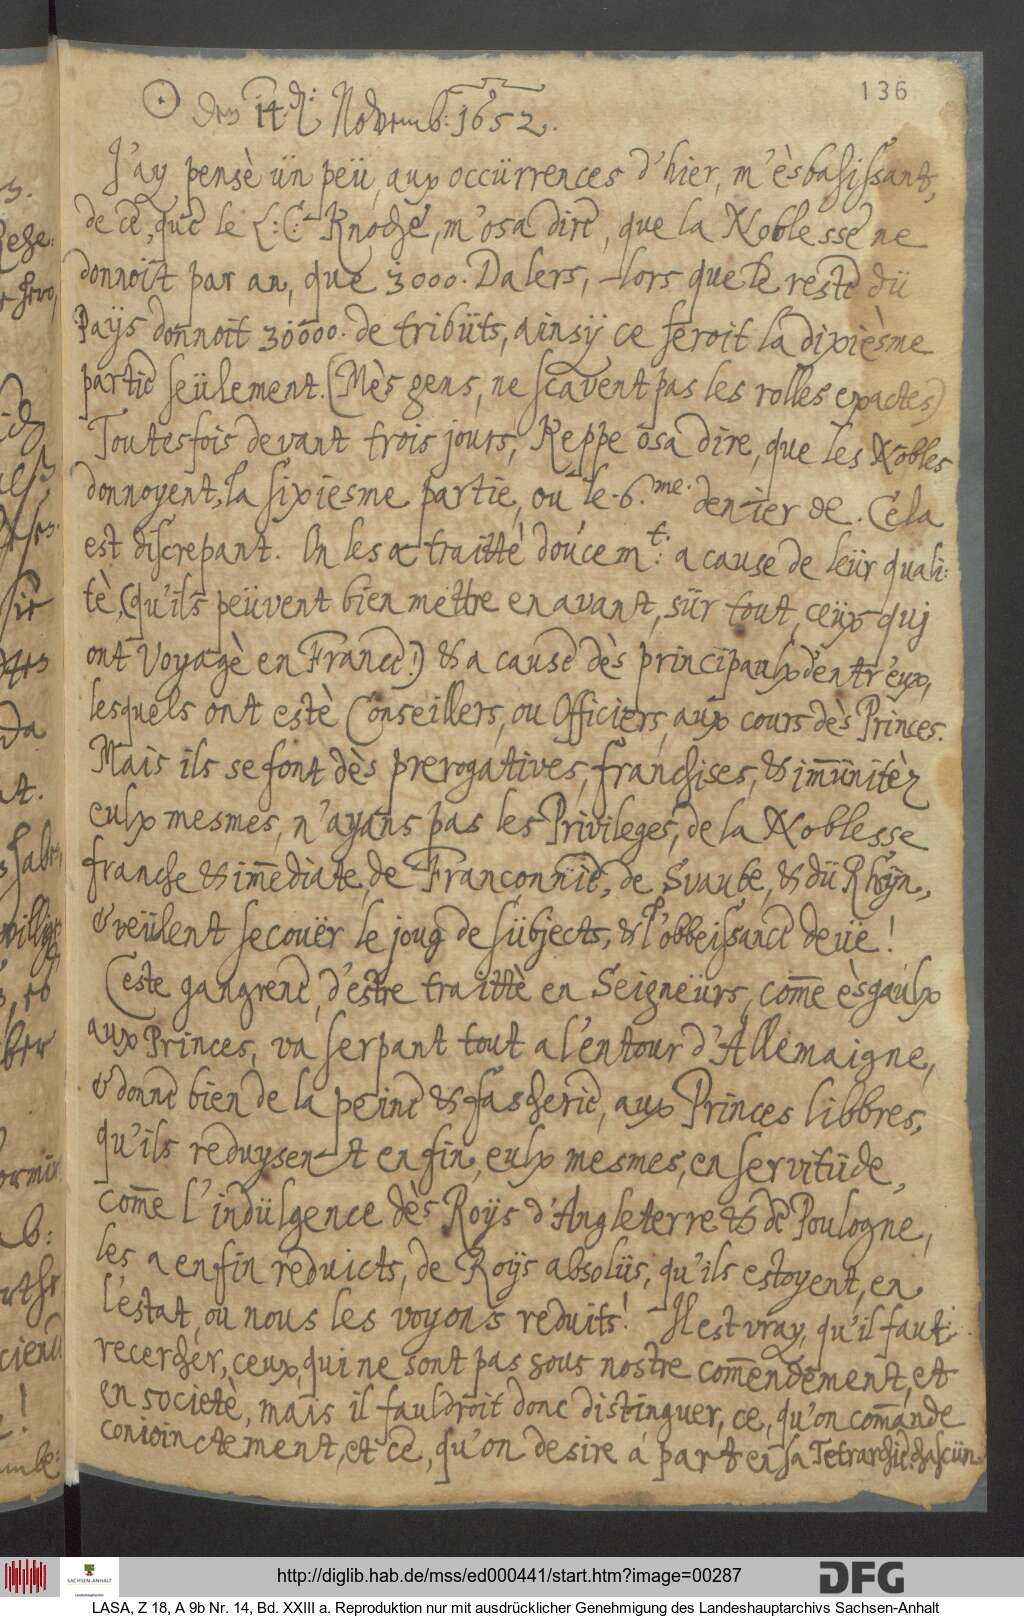 136
☉ den 14den: Novemb: 1652.
J'ay pensè ün peü, aux occürrences d'hier, m'èsbahissant,
de ce, que le L: C: Knoche, m'osa dire, que la Noblesse ne
donnoit par an, que 3000. Dalers, lors que le reste dü
Païjs donnoit 30000. de tribüts, ainsÿ ce seroit la dixièsme
partie seülement. (Mès gens, ne scavent pas les rolles exactes)
Toutesfois devant trois jours, Keppe osa dire, que les Nobles
donnoyent, la sixiesme partie, ou le 6.me. denier &c. Cela
est discrepant. On les a traittè doucemt: a cause de leür quali-
tè, (qu'ils peüvent bien mettre en avant, sür tout, ceüx quj
ont voyagè en France!) & a cause dès principaulx d'entr'eux,
lesquels ont estè Conseillers, ou Officiers, aux cours dès Princes.
Mais ils se font dès prerogatives, franchises, & im̅ünitèz
eulx mesmes, n'ayans pas les Privileges, de la Noblesse
franche & im̅ediate, de Franconnie, de Svaube, & dü Rhijn,
& veülent secouër le joug de sübjects, & l'obbeissance deüe!
Ceste gangrene, d'estre traittè en Seigneürs, com̅e èsgaulx
aux Princes, va serpant tout a l'entour d'Allemaigne,
& donne bien de la peine & fascherie, aux Princes libbres,
qu'ils reduysent enfin, eulx mesmes, en servitüde,
com̅e l'indülgence dès Roÿs d'Angleterre & de Poulogne,
les a enfin reduicts, de Roÿs absolüs, qu'ils estoyent, en
l'estat, ou nous les voyons reduits! Il est vray, qu'il faut
recercher, ceux, qui ne sont pas sous nostre com̅endement, et
en societè, mais il fauldroit donc distinguer, ce, qu'on com̅ande
conioinctement, et ce, qu'on desire a part en sa Tetrarchie chascün.
http://diglib.hab.de/mss/ed000441/start.htm?image=00287
SACHSEN-ANHALT
Landeshauptarchiv
DFG
LASA, Z 18, A 9b Nr. 14, Bd. XXIII a. Reproduktion nur mit ausdrücklicher Genehmigung des Landeshauptarchivs Sachsen-Anhalt